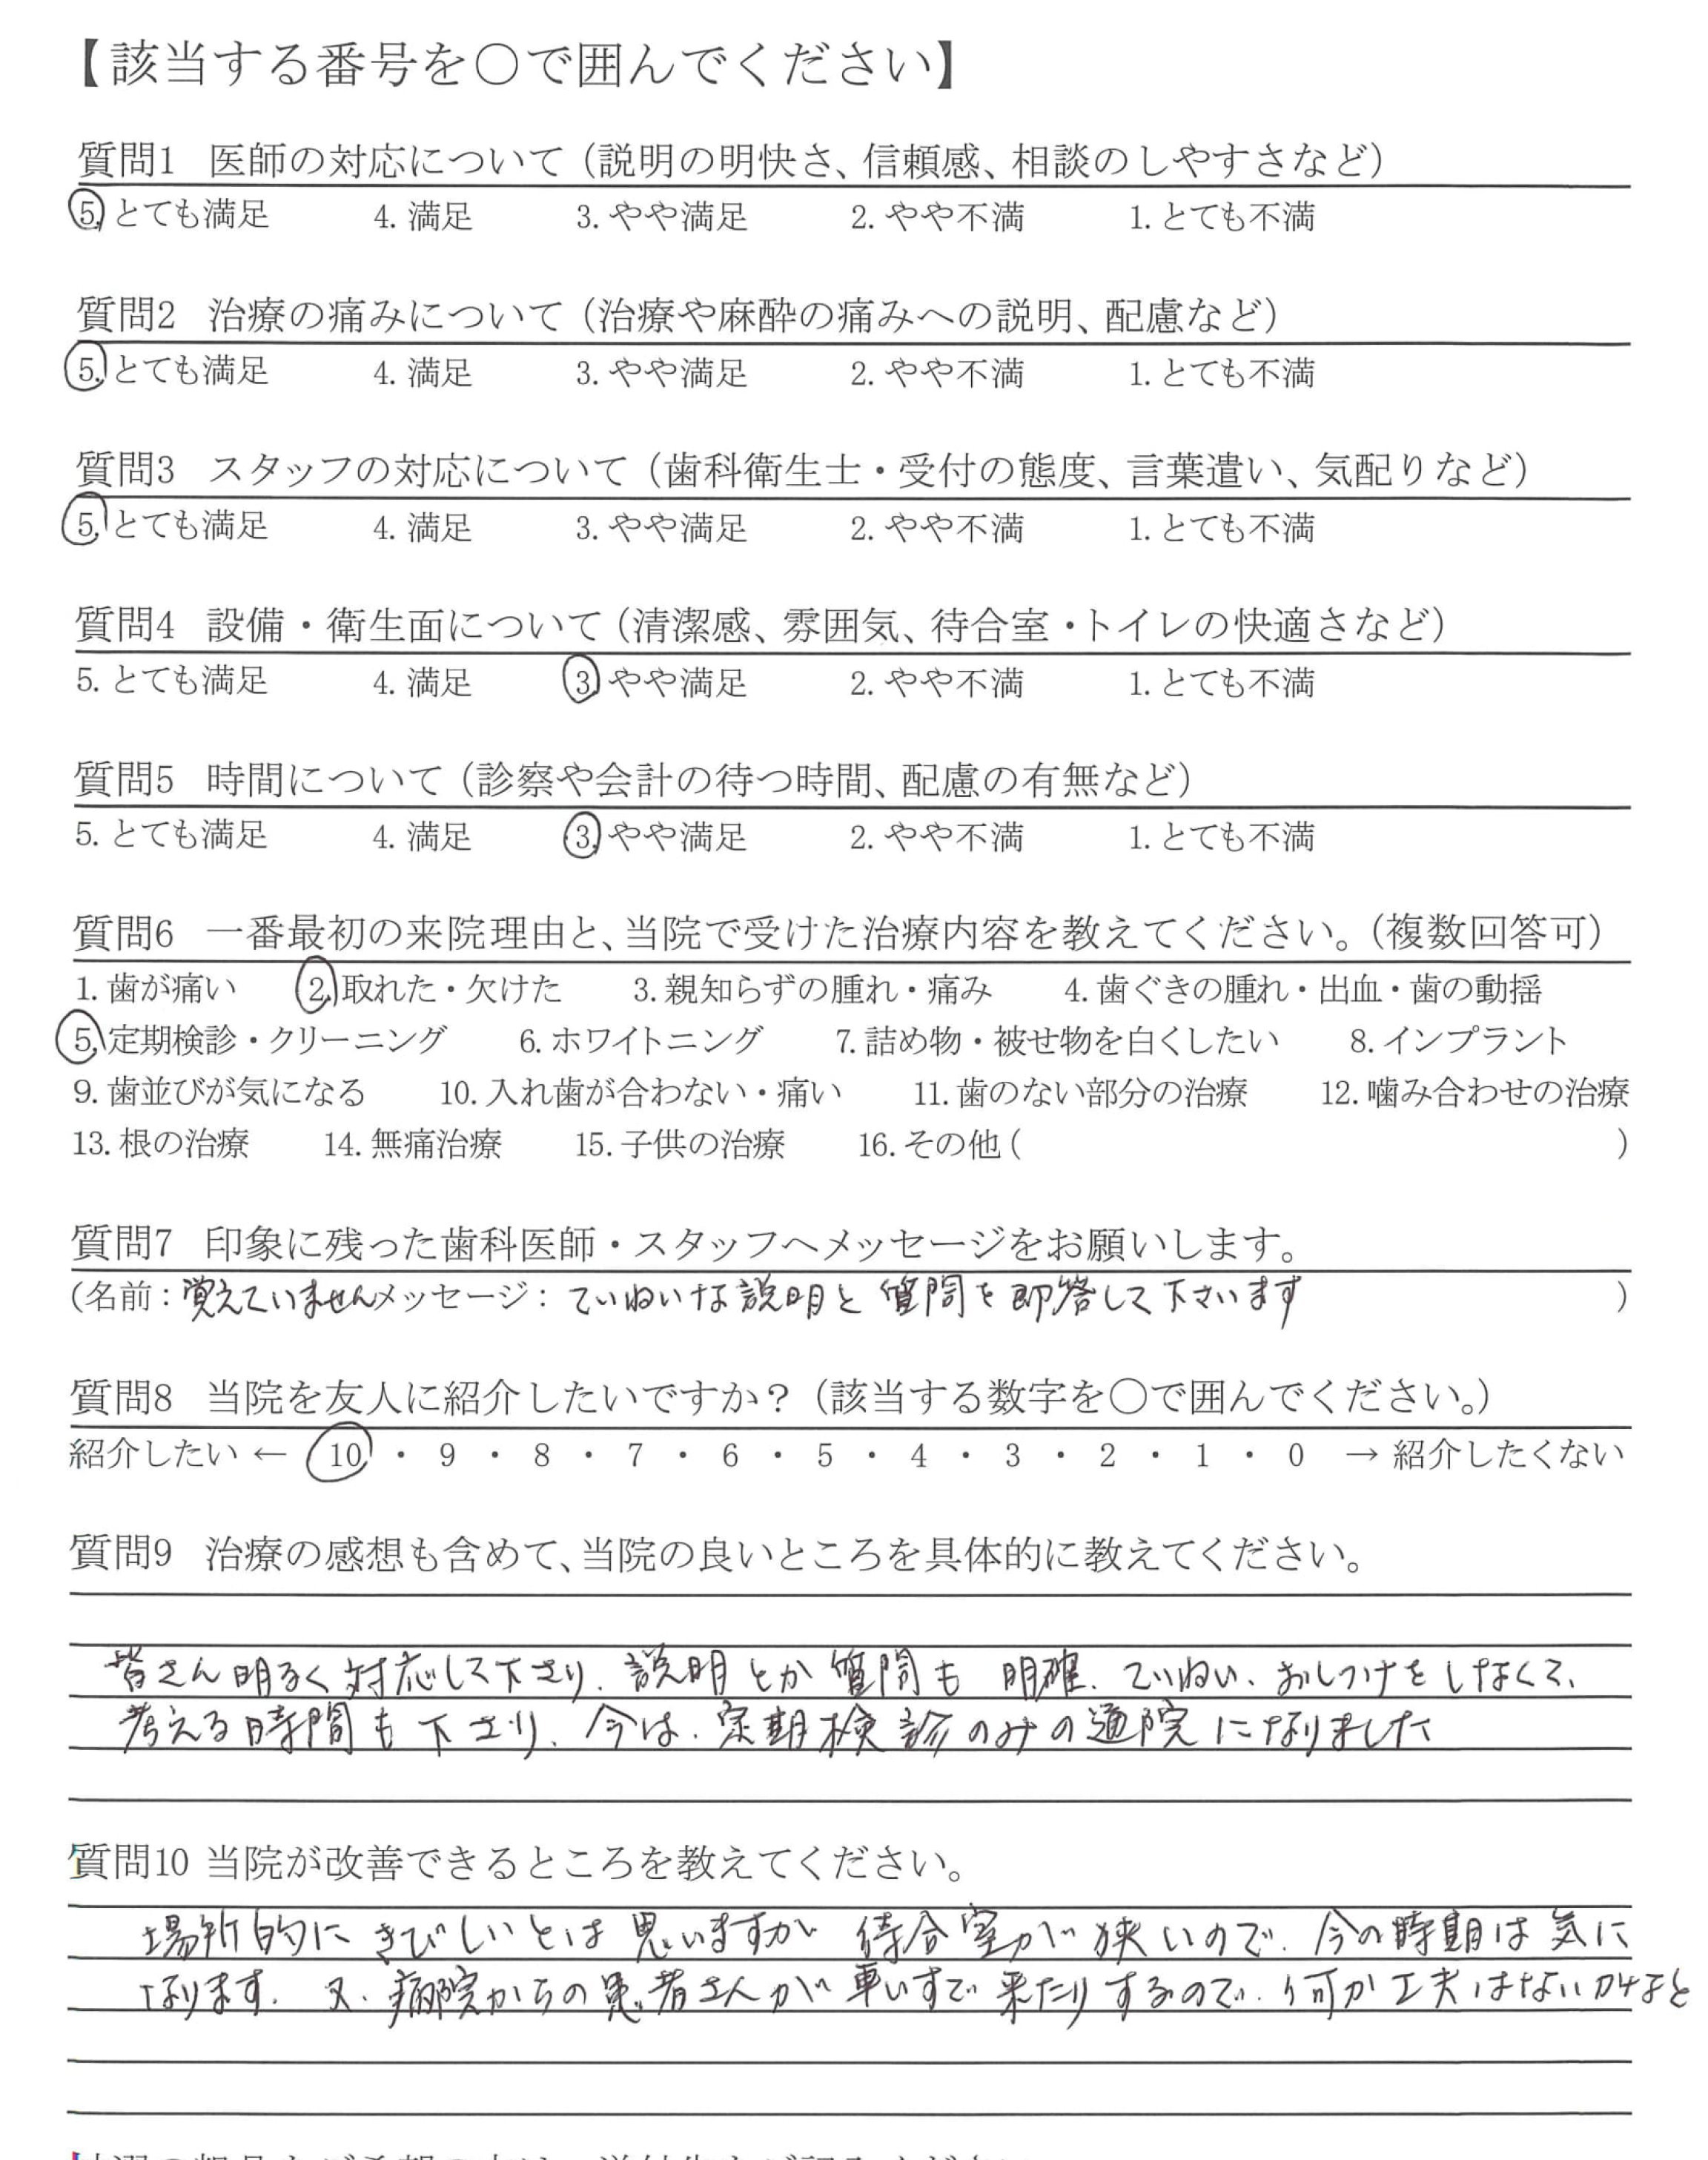 【該当する番号を○で囲んでください】
質問1 医師の対応について（説明の明快さ、信頼感、相談のしやすさなど）
5. とても満足 4. 満足 3. やや満足 2. やや不満 1. とても不満
質問2 治療の痛みについて（治療や麻酔の痛みへの説明、配慮など）
5. とても満足 4. 満足 3. やや満足 2. やや不満 1. とても不満
質問3 スタッフの対応について（歯科衛生士・受付の態度、言葉遣い、気配りなど）
5. とても満足 4. 満足 3. やや満足 2. やや不満 1. とても不満
質問4 設備・衛生面について（清潔感、雰囲気、待合室・トイレの快適さなど）
5. とても満足 4. 満足 3. やや満足 2. やや不満 1. とても不満
質問5 時間について（診察や会計の待つ時間、配慮の有無など）
5. とても満足 4. 満足 3. やや満足 2. やや不満 1. とても不満
質問6 一番最初の来院理由と、当院で受けた治療内容を教えてください。（複数回答可）
1. 歯が痛い 2. 取れた・欠けた 3. 親知らずの腫れ・痛み 4. 歯ぐきの腫れ・出血・歯の動揺
5. 定期検診・クリーニング 6. ホワイトニング 7. 詰め物・被せ物を白くしたい 8. インプラント
9. 歯並びが気になる 10. 入れ歯が合わない・痛い 11. 歯のない部分の治療 12. 噛み合わせの治療
13. 根の治療 14. 無痛治療 15. 子供の治療 16. その他（ ）
質問7 印象に残った歯科医師・スタッフへメッセージをお願いします。
（名前：覚えていませんメッセージ：ていねいな説明と質問を即答して下さいます）
質問8 当院を友人に紹介したいですか？（該当する数字を○で囲んでください。）
紹介したい ← 10 ・ 9 ・ 8 ・ 7 ・ 6 ・ 5 ・ 4 ・ 3 ・ 2 ・ 1 ・ 0 → 紹介したくない
質問9 治療の感想も含めて、当院の良いところを具体的に教えてください。
皆さん明るく対応して下さり、説明とか質問も明確、ていねい、おしつけをしなくて、
考える時間も下さり、今は、定期検診のみの通院になりました
質問10 当院が改善できるところを教えてください。
場所的にきびしいとは思いますが待合室が狭いので、今の時期は気に
なります。又、病院からの患者さんが車いすで来たりするので、何か工夫はないかなと